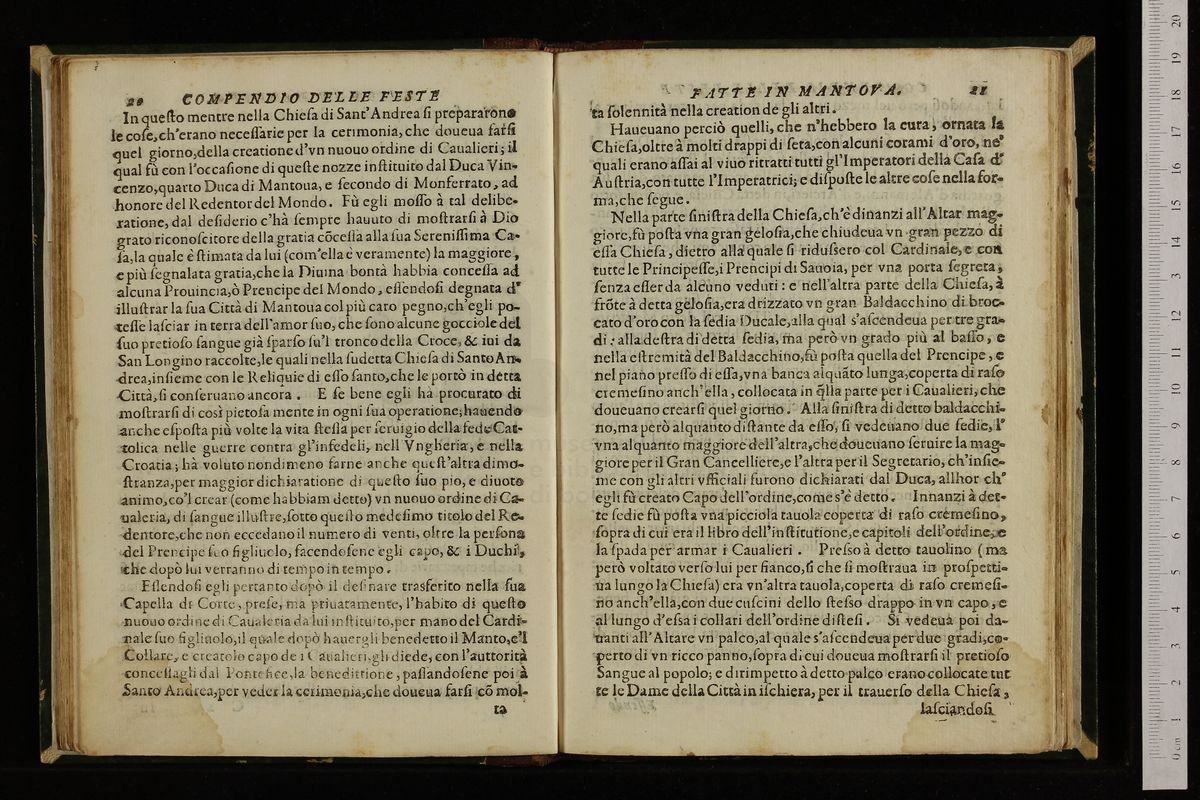 20 COMPENDIO DELLE FESTE
In queſto mentre nella Chieſa di Sant'Andrea ſi prepararono
le coſe, ch'erano neceſſarie per la cerimonia, che doueua farſi
quel giorno, della creatione d'vn nuouo ordine di Caualieri; il
qual fù con l'occaſione di queſte nozze inſtituito dal Duca Vin-
cenzo, quarto Duca di Mantoua, e ſecondo di Monferrato, ad
honore del Redentor del Mondo. Fù egli moſſo à tal delibe-
ratione, dal deſiderio c'hà ſempre hauuto di moſtrarſi à Dio
grato riconoſcitore della gratia cõceſſa alla ſua Sereniſſima Ca-
ſa, la quale è ſtimata da lui (com'ella è veramente) la maggiore,
e più ſegnalata gratia, che la Diuina bontà habbia conceſſa ad
alcuna Prouincia, ò Prencipe del Mondo, eſſendoſi degnata d'
illuſtrar la ſua Città di Mantoua col più caro pegno, ch'egli po-
teſſe laſciar in terra dell'amor ſuo, che ſono alcune gocciole del
ſuo pretioſo ſangue già ſparſo ſu'l tronco della Croce, & iui da
San Longino raccolte, le quali nella ſudetta Chieſa di Santo An-
drea, inſieme con le Reliquie di eſſo ſanto, che le portò in detta
Città, ſi conſeruano ancora. E ſe bene egli hà procurato di
moſtrarſi di così pietoſa mente in ogni ſua operatione; hauendo
anche eſpoſta più volte la vita ſteſſa per ſeruigio della fede Cat-
tolica nelle guerre contra gl'infedeli, nell Vngheria, e nella
Croatia; hà voluto nondimeno farne anche queſt'altra dimo-
ſtranza, per maggior dichiaratione di queſto ſuo pio, e diuoto
animo, co'l crear (come habbiam detto) vn nuouo ordine di Ca-
ualeria, di ſangue illuſtre, ſotto queſto medeſimo titolo del Re-
dentore, che non eccedano il numero di venti, oltre la perſona
del Prencipe ſuo figliuolo, facendoſene egli capo, & i Duchi,
che dopò lui verranno di tempo in tempo.
Eſſendoſi egli pertanto dopò il deſinare trasferito nella ſua
Capella di Corte, preſe, ma priuatamente, l'habito di queſto
nuouo ordine di Caualeria da lui inſtituito, per mano del Cardi-
nale ſuo figliuolo, il quale dopò hauergli benedetto il Manto, e'l
Collare, e creatolo capo de i Caualieri, gli diede, con l'auttorità
conceſſagli dal Pontefice, la benedittione, paſſandoſene poi à
Santo Andrea, per veder la cerimonia, che doueua farſi cõ mol-
ta
FATTE IN MANTOVA. 21
ta ſolennità nella creation de gli altri.
Haueuano perciò quelli, che n'hebbero la cura, ornata la
Chieſa, oltre à molti drappi di ſeta, con alcuni corami d'oro, ne'
quali erano aſſai al viuo ritratti tutti gl'Imperatori della Caſa d'
Auſtria, con tutte l'Imperatrici; e diſpoſte le altre coſe nella for-
ma, che ſegue.
Nella parte ſiniſtra della Chieſa, ch'è dinanzi all'Altar mag-
giore, fù poſta vna gran geloſia, che chiudeua vn gran pezzo di
eſſa Chieſa, dietro alla quale ſi riduſſero col Cardinale, e con
tutte le Principeſſe, i Prencipi di Sauoia, per vna porta ſegreta,
ſenza eſſer da alcuno veduti: e nell'altra parte della Chieſa, à
frõte à detta geloſia, era drizzato vn gran Baldacchino di broc-
cato d'oro con la ſedia Ducale, alla qual s'aſcendeua per tre gra-
di: alla deſtra di detta ſedia, ma però vn grado più al baſſo, e
nella eſtremità del Baldacchino, fù poſta quella del Prencipe, e
nel piano preſſo di eſſa, vna banca alquãto lunga, coperta di raſo
cremeſino anch'ella, collocata in q̃lla parte per i Caualieri, che
doueuano crearſi quel giorno. Alla ſiniſtra di detto baldacchi-
no, ma però alquanto diſtante da eſſo, ſi vedeuano due ſedie, l'
vna alquanto maggiore dell'altra, che doueuano ſeruire la mag-
giore per il Gran Cancelliere, e l'altra per il Segretario, ch'inſie-
me con gli altri vfficiali furono dichiarati dal Duca, allhor ch'
egli fù creato Capo dell'ordine, come s'è detto. Innanzi à det-
te ſedie fù poſta vna picciola tauola coperta di raſo cremeſino,
ſopra di cui era il libro dell'inſtitutione, e capitoli dell'ordine, e
la ſpada per armar i Caualieri. Preſso à detto tauolino (ma
però voltato verſo lui per fianco, ſi che ſi moſtraua in proſpetti-
ua lungo la Chieſa) era vn'altra tauola, coperta di raſo cremeſi-
no anch'ella, con due cuſcini dello ſteſso drappo in vn capo, e
al lungo d'eſsa i collari dell'ordine diſteſi. Si vedeua poi da-
uanti all'Altare vn palco, al quale s'aſcendeua per due gradi, co-
perto di vn ricco panno, ſopra di cui doueua moſtrarſi il pretioſo
Sangue al popolo; e dirimpetto à detto palco erano collocate tut
te le Dame della Città in iſchiera, per il trauerſo della Chieſa,
laſciandoſi